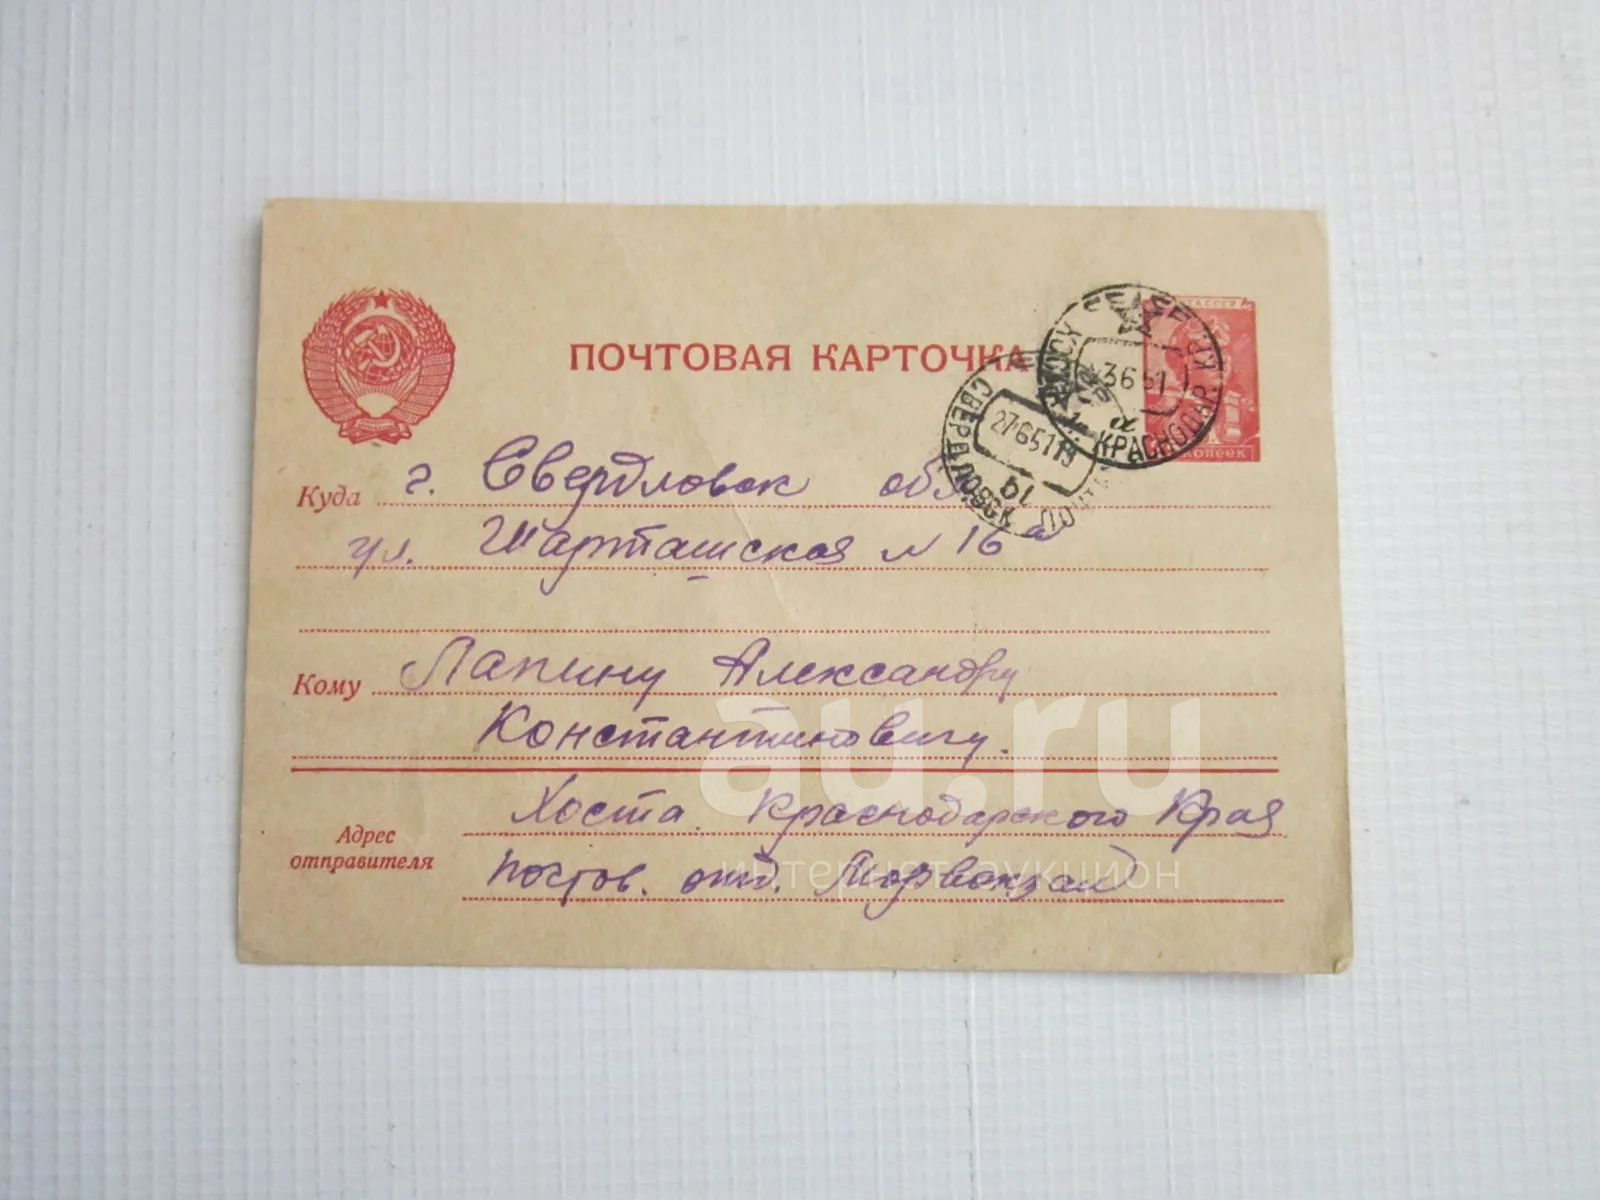 ПОЧТОВАЯ КАРТОЧКА
Куда г. Свердловск обл
ул. Шарташская № 16 а
Кому Лапину Александру
Константиновичу.
Адрес отправителя
Хоста Краснодарского Края
почтов. отд. Морвокзал
СВЕРДЛОВСК ПОЧТАМТ
27 6 51 19
Ы
КРАСНОДАР.
36 51
а
копеек
au.ru
интернет-аукцион